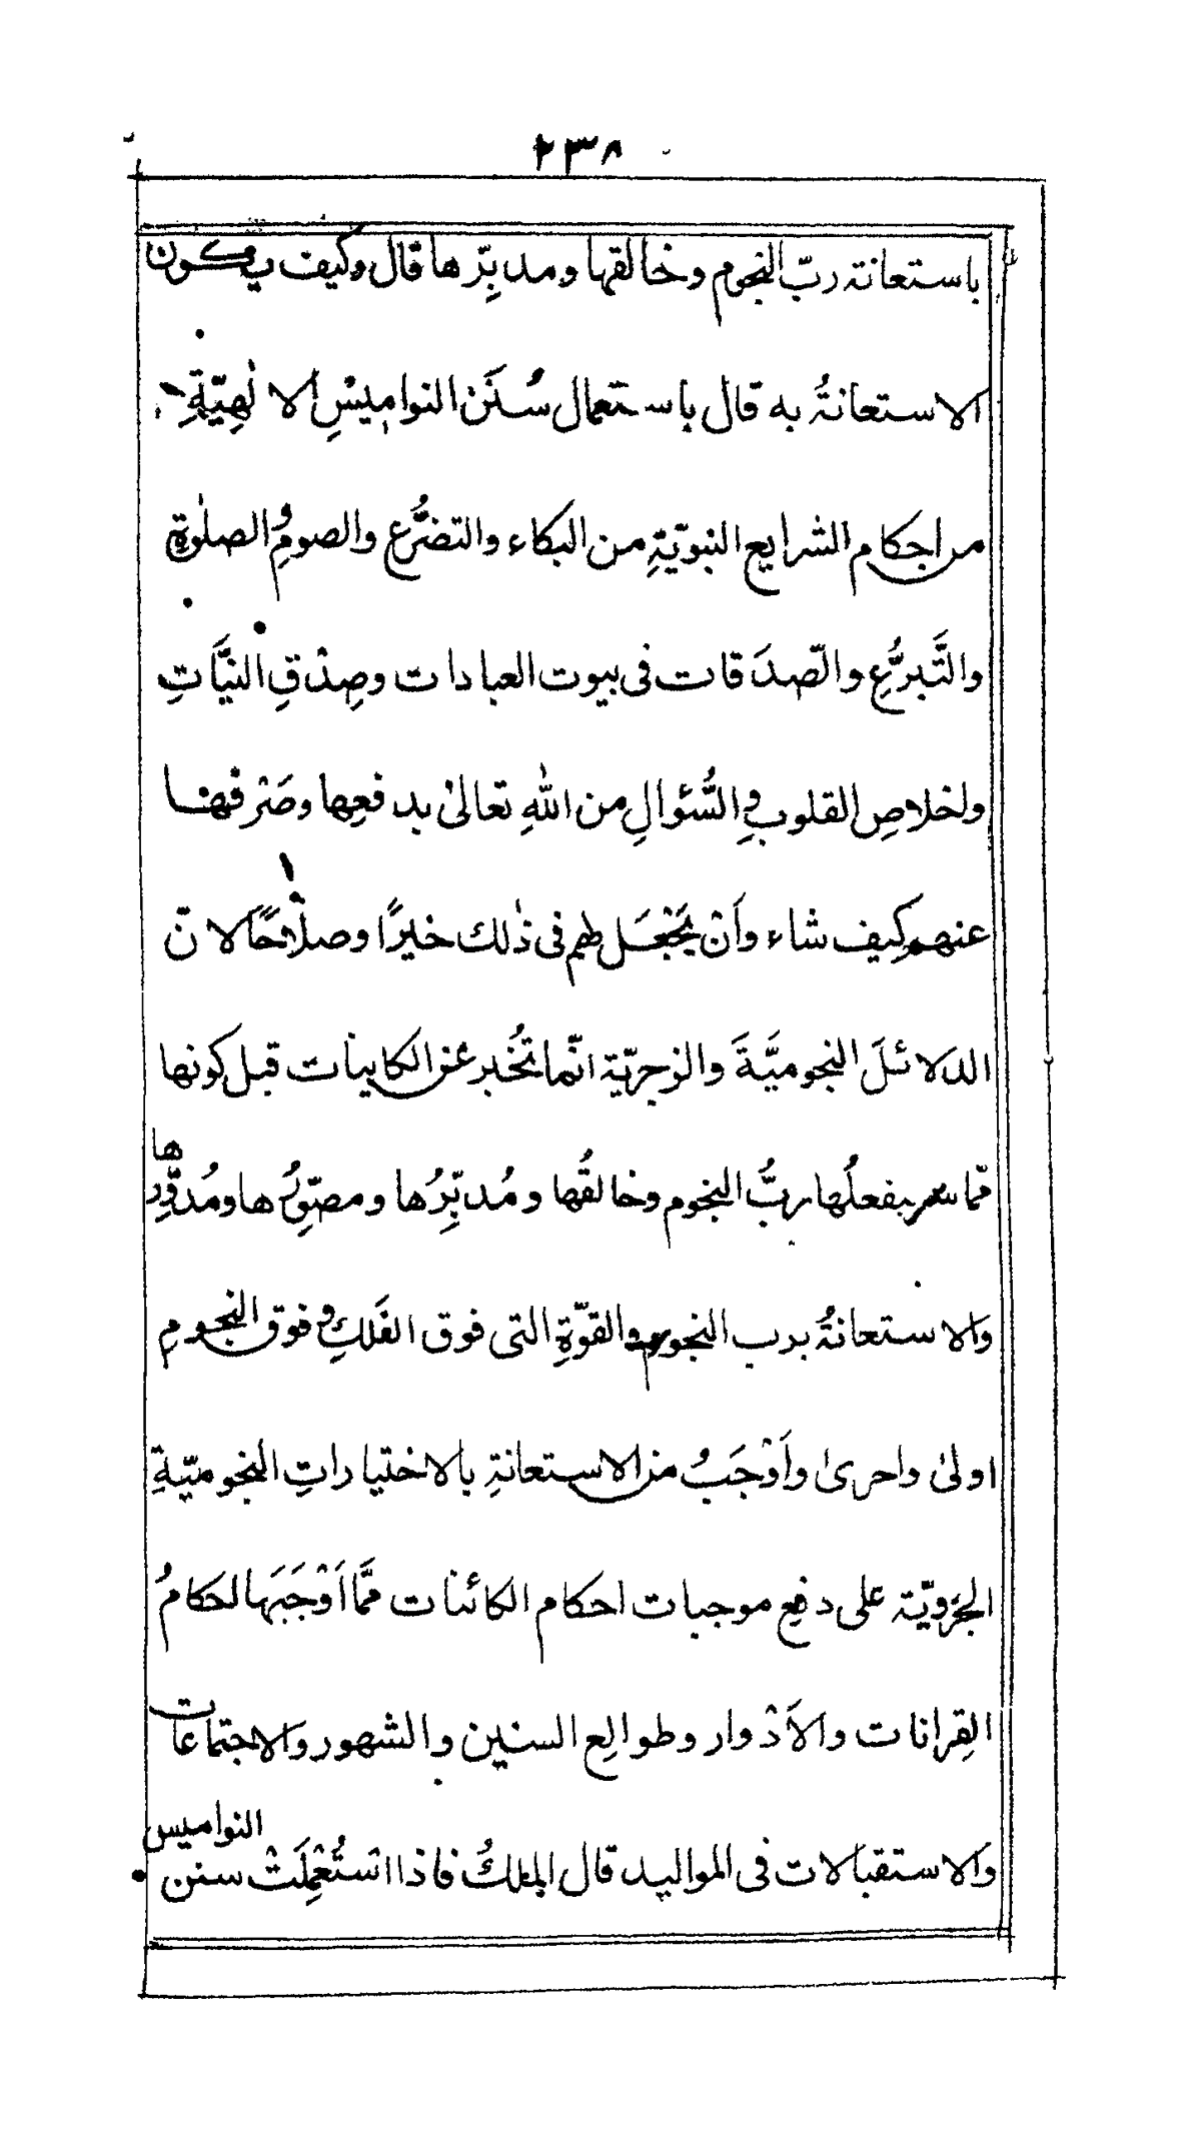 ٢٣٨
باستعانة ربّ النجوم وخالقها ومدبِّرها قال وكيف يكون
الاستعانةُ به قال باستعمال سُنَن النواميسِ الالٰهِيّةِ
من احكام الشرايع النبويّةِ من البكاء والتضرُّع والصومِ والصلٰوةِ
والتَّبرُّعِ والصّدَقات فى بيوت العبادات وصِدْقِ النيَّاتِ
واخلاصِ القلوبِ والسُّؤالِ من اللّٰهِ تعالىٰ بدفعِها وصَرْفها
عنهم كيف شاء وأنْ يَجْعَل لهم فى ذٰلك خيرًا وصلاحًا لانّ
الدلائلَ النجوميَّةَ والزجريّة انّما تُخبر عن الكاينات قبل كونها
ممّا سيفعلُها ربُّ النجوم وخالقُها ومُدبِّرُها ومصوِّرُها ومُدوِّرها
والاستعانةُ برب النجوم والقوّةِ التى فوق الفَلكِ وفوق النجومِ
اولىٰ واحرىٰ وأوْجَبُ من الاستعانةِ بالاختياراتِ النجوميّةِ
الجزويّة على دفعِ موجبات احكام الكائنات ممَّا اَوْجَبَها احكامُ
القِرانات والأدْوار وطوالِع السنين والشهور والاجتماعات
والاستقبالات فى المواليد قال الملكُ فاذا اسْتُعْمِلَتْ سنن النواميس